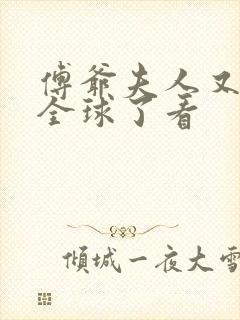 傅爷夫人又
全球了看
倾城一夜大雪